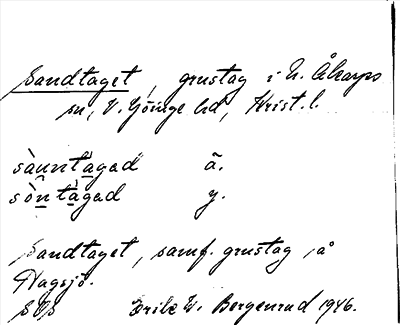 Sandtaget, grustag i N. Åkarps
sn, V. Göinge hd, Krist. l.
sàuntàgad ä.
sòntàgad y.
Sandtaget, samf. grustag, å
Flagsjö.
SOS Erik W. Bergenrud 1946.